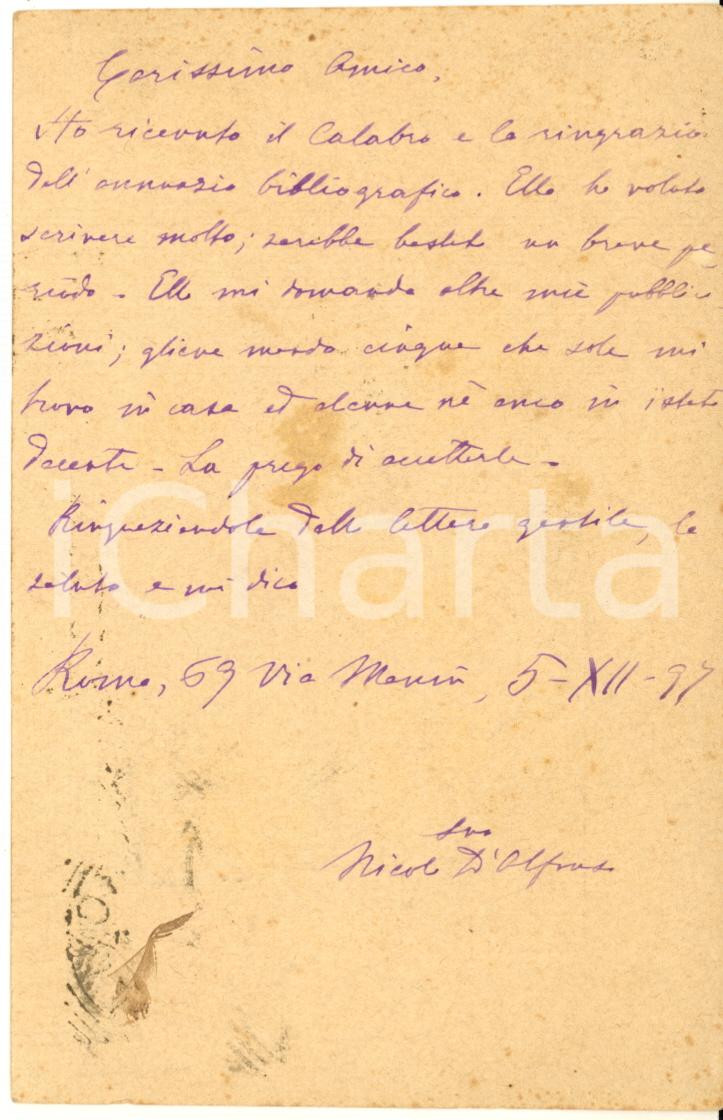 Carissimo Amico,
Ho ricevuto il Calabro e la ringrazio
dell'annunzio bibliografico. Ella ha voluto
scrivere molto; sarebbe bastato un breve pe-
riodo. Ella mi domanda altre mie pubblica
zioni; gliene mando cinque che sole mi
trovo in casa ed alcune nè anco in istato
decente. La prego di accettarle.
Ringraziandola della lettera gentile, la
saluto e mi dico
Roma, 69 Via Manin, 5-XII-97
Suo
Nicolò D'Alfonso
iCharta